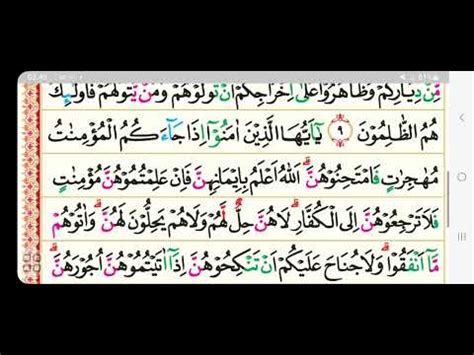 02:49
61%
مِّنْ دِيَارِكُمْ وَظَاهَرُوْا عَلٰٓى اِخْرَاجِكُمْ اَنْ تَوَلَّوْهُمْ ۚ وَمَنْ يَّتَوَلَّهُمْ فَاُولٰٓئِكَ
هُمُ الظّٰلِمُوْنَ ۹ يٰٓاَيُّهَا الَّذِيْنَ اٰمَنُوْٓا اِذَا جَآءَكُمُ الْمُؤْمِنٰتُ
مُهٰجِرٰتٍ فَامْتَحِنُوْهُنَّ ۗ اَللّٰهُ اَعْلَمُ بِاِيْمَانِهِنَّ ۚ فَاِنْ عَلِمْتُمُوْهُنَّ مُؤْمِنٰتٍ
فَلَا تَرْجِعُوْهُنَّ اِلَى الْكُفَّارِ ۗ لَا هُنَّ حِلٌّ لَّهُمْ وَلَا هُمْ يَحِلُّوْنَ لَهُنَّ ۗ وَاٰتُوْهُمْ
مَّآ اَنْفَقُوْا ۗ وَلَا جُنَاحَ عَلَيْكُمْ اَنْ تَنْكِحُوْهُنَّ اِذَآ اٰتَيْتُمُوْهُنَّ اُجُوْرَهُنَّ ۗ